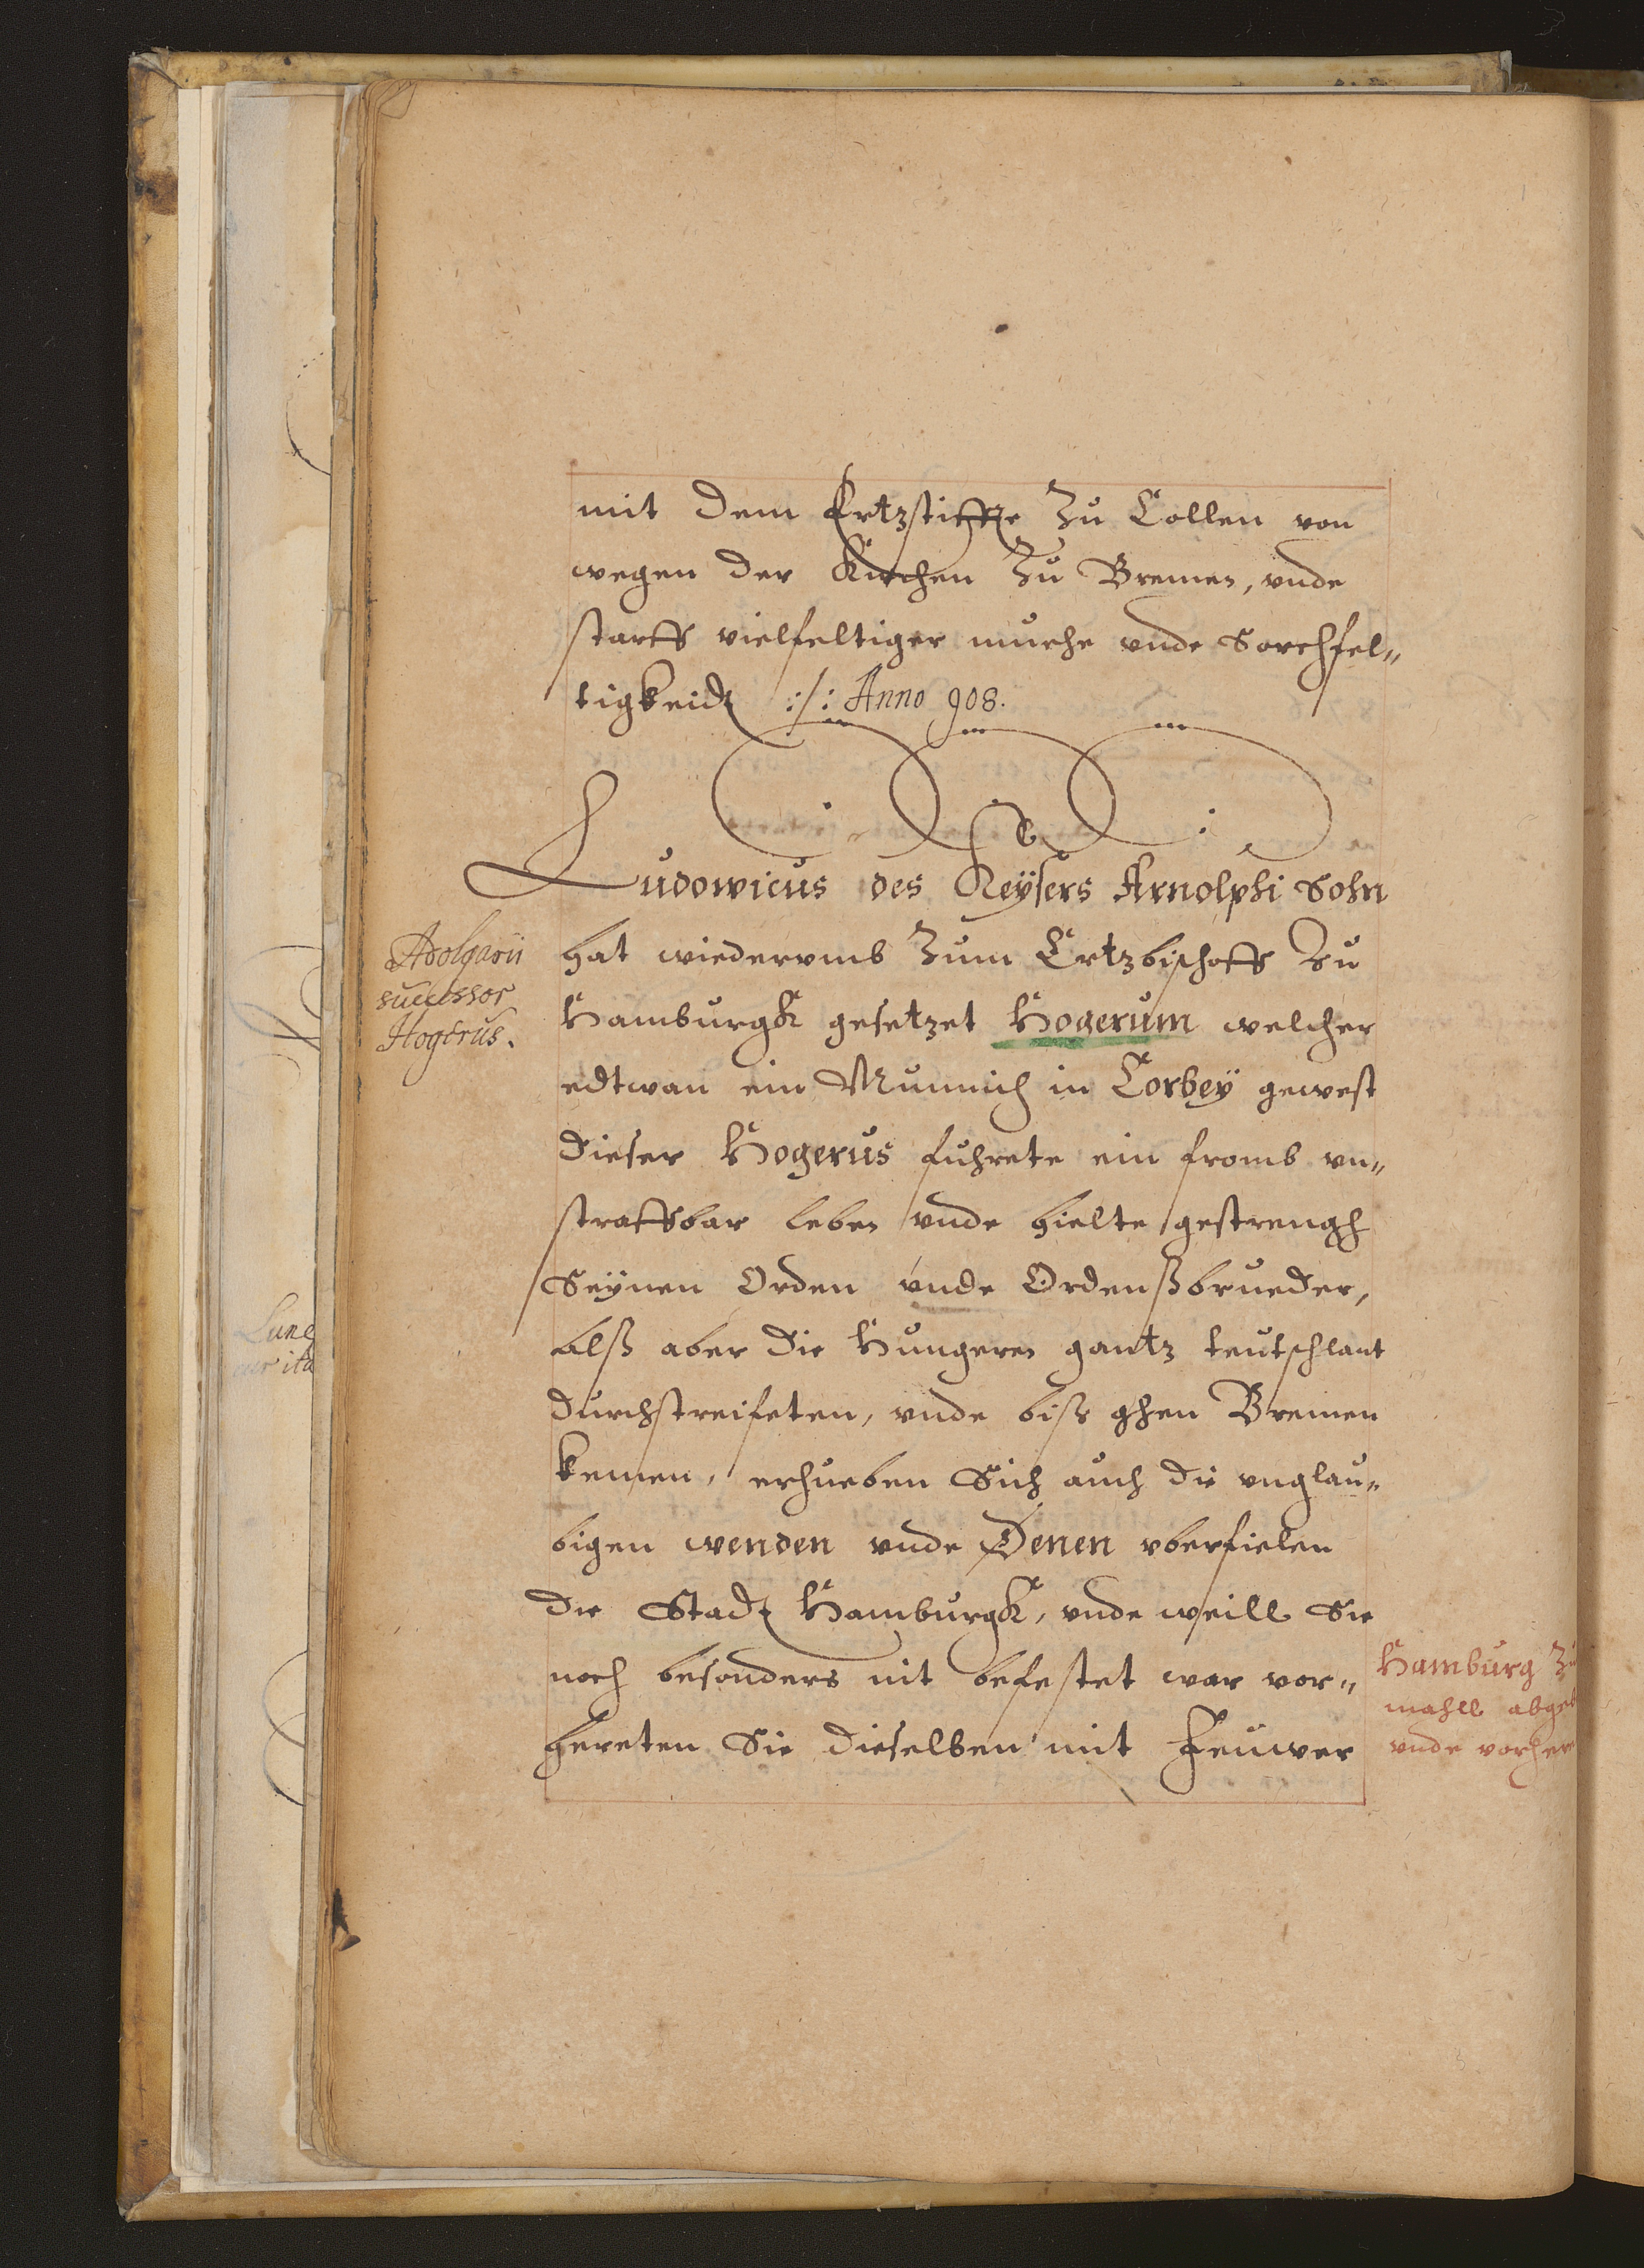 mit dem Ertzstiffte Zu Collen von
wegen der Kirchen Zu Bremen, vnde
starff vielfeltiger muehe vnde Sorchfel„
tigkeidt :/: Anno 908.
Ludowicus des Keÿsers Arnolphi Sohn
Adolgarii
successor
Hogerus.
hat wiedervmb Zum Ertzbischoff Zu
Hamburgk gesetzet Hogerum welcher
edtwan ein Munnich in Corbeÿ gewest
dieser Hogerus fuhrete ein fromb vn„
straffbar leben vnde hielte gestrengh
Seÿnen Orden vnde Ordenßbrueder,
alß aber die Hungeren gantz teutschlant
durchstreifeten, vnde biß ghen Bremen
kemen, erhueben Sich auch die vnglau„
bigen wenden vnde Denen vberfielen
die Stadt Hamburgk, vnde weill Sie
noch besonders nit befestet war vor„
hereten Sie dieselben mit Feuwer
Hamburg Zu
mahll abgeb
vnde vorher
Lune